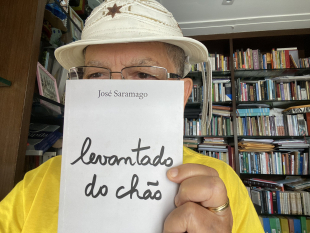 José Saramago
levantado
do chão